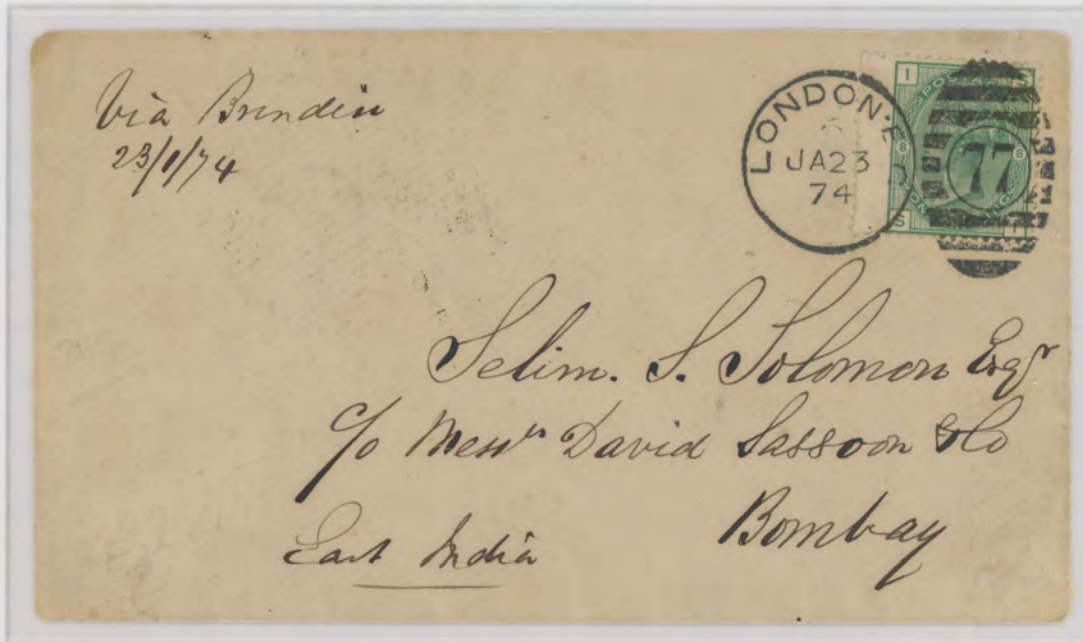 Via Brindisi
23/1/74
LONDON·E
JA23
74
77
I
POSTAGE
8
8
S
I
Selim. S. Solomon Esqr
c/o Messrs David Sassoon & Co
Bombay
East India